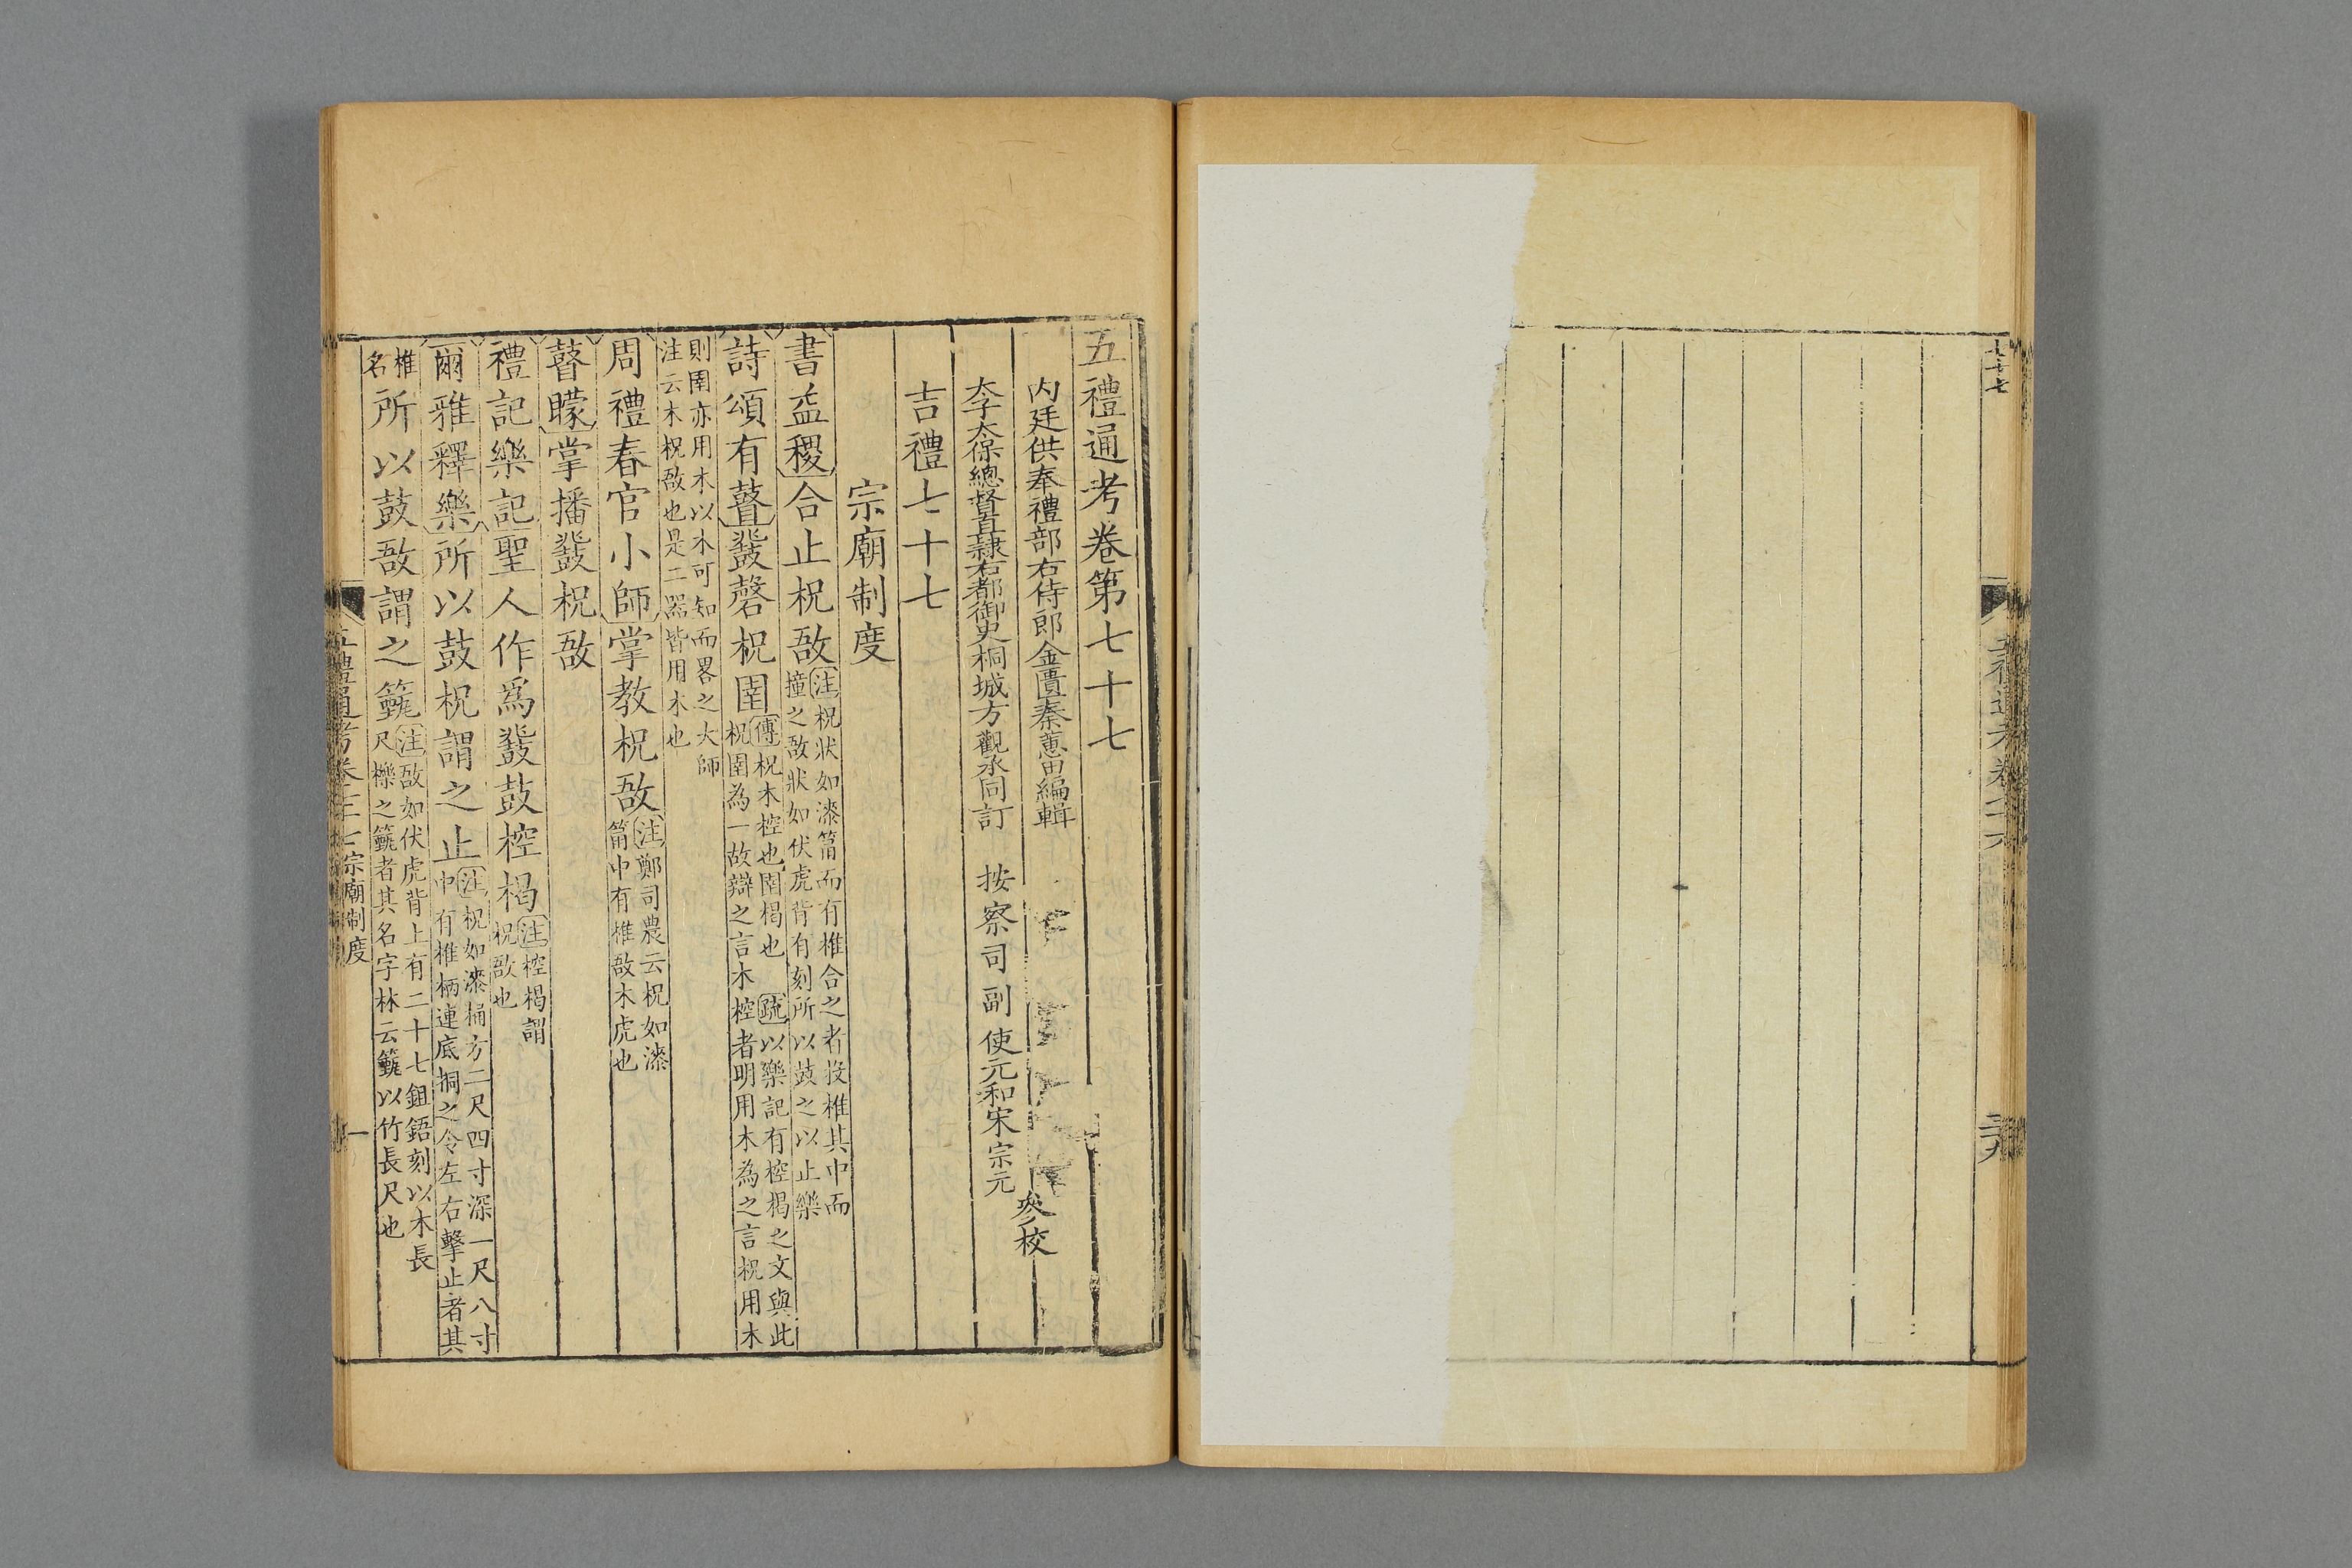 五禮通考卷第七十七
内廷供奉禮部右侍郎金匱秦蕙田編輯
太子太保總督直隸右都御史桐城方觀承同訂　按察司副使元和宋宗元
參校
吉禮七十七
宗廟制度
書益稷合止柷敔
注柷狀如漆筩而有椎合之者投椎其中而
撞之敔狀如伏虎背有刻所以鼓之以止樂
詩頌有瞽鼗磬柷圉
傳柷木椌也圉楬也　疏以樂記有椌楬之文與此
柷圉為一故辯之言木椌者明用木為之言柷用木
則圉亦用木以木可知而畧之大師
注云木柷敔也是二器皆用木也
周禮春官小師掌教柷敔
注鄭司農云柷如漆
筩中有椎敔木虎也
瞽矇掌播鼗柷敔
禮記樂記聖人作爲鼗鼓椌楬
注椌楬謂
柷敔也
爾雅釋樂所以鼓柷謂之止
注柷如漆桶方二尺四寸深一尺八寸
中有椎柄連底挏之令左右擊止者其
椎
名
所以鼓敔謂之籈
注敔如伏虎背上有二十七鉏鋙刻以木長
尺櫟之籈者其名字林云籈以竹長尺也
五禮通考卷七十七宗廟制度
一